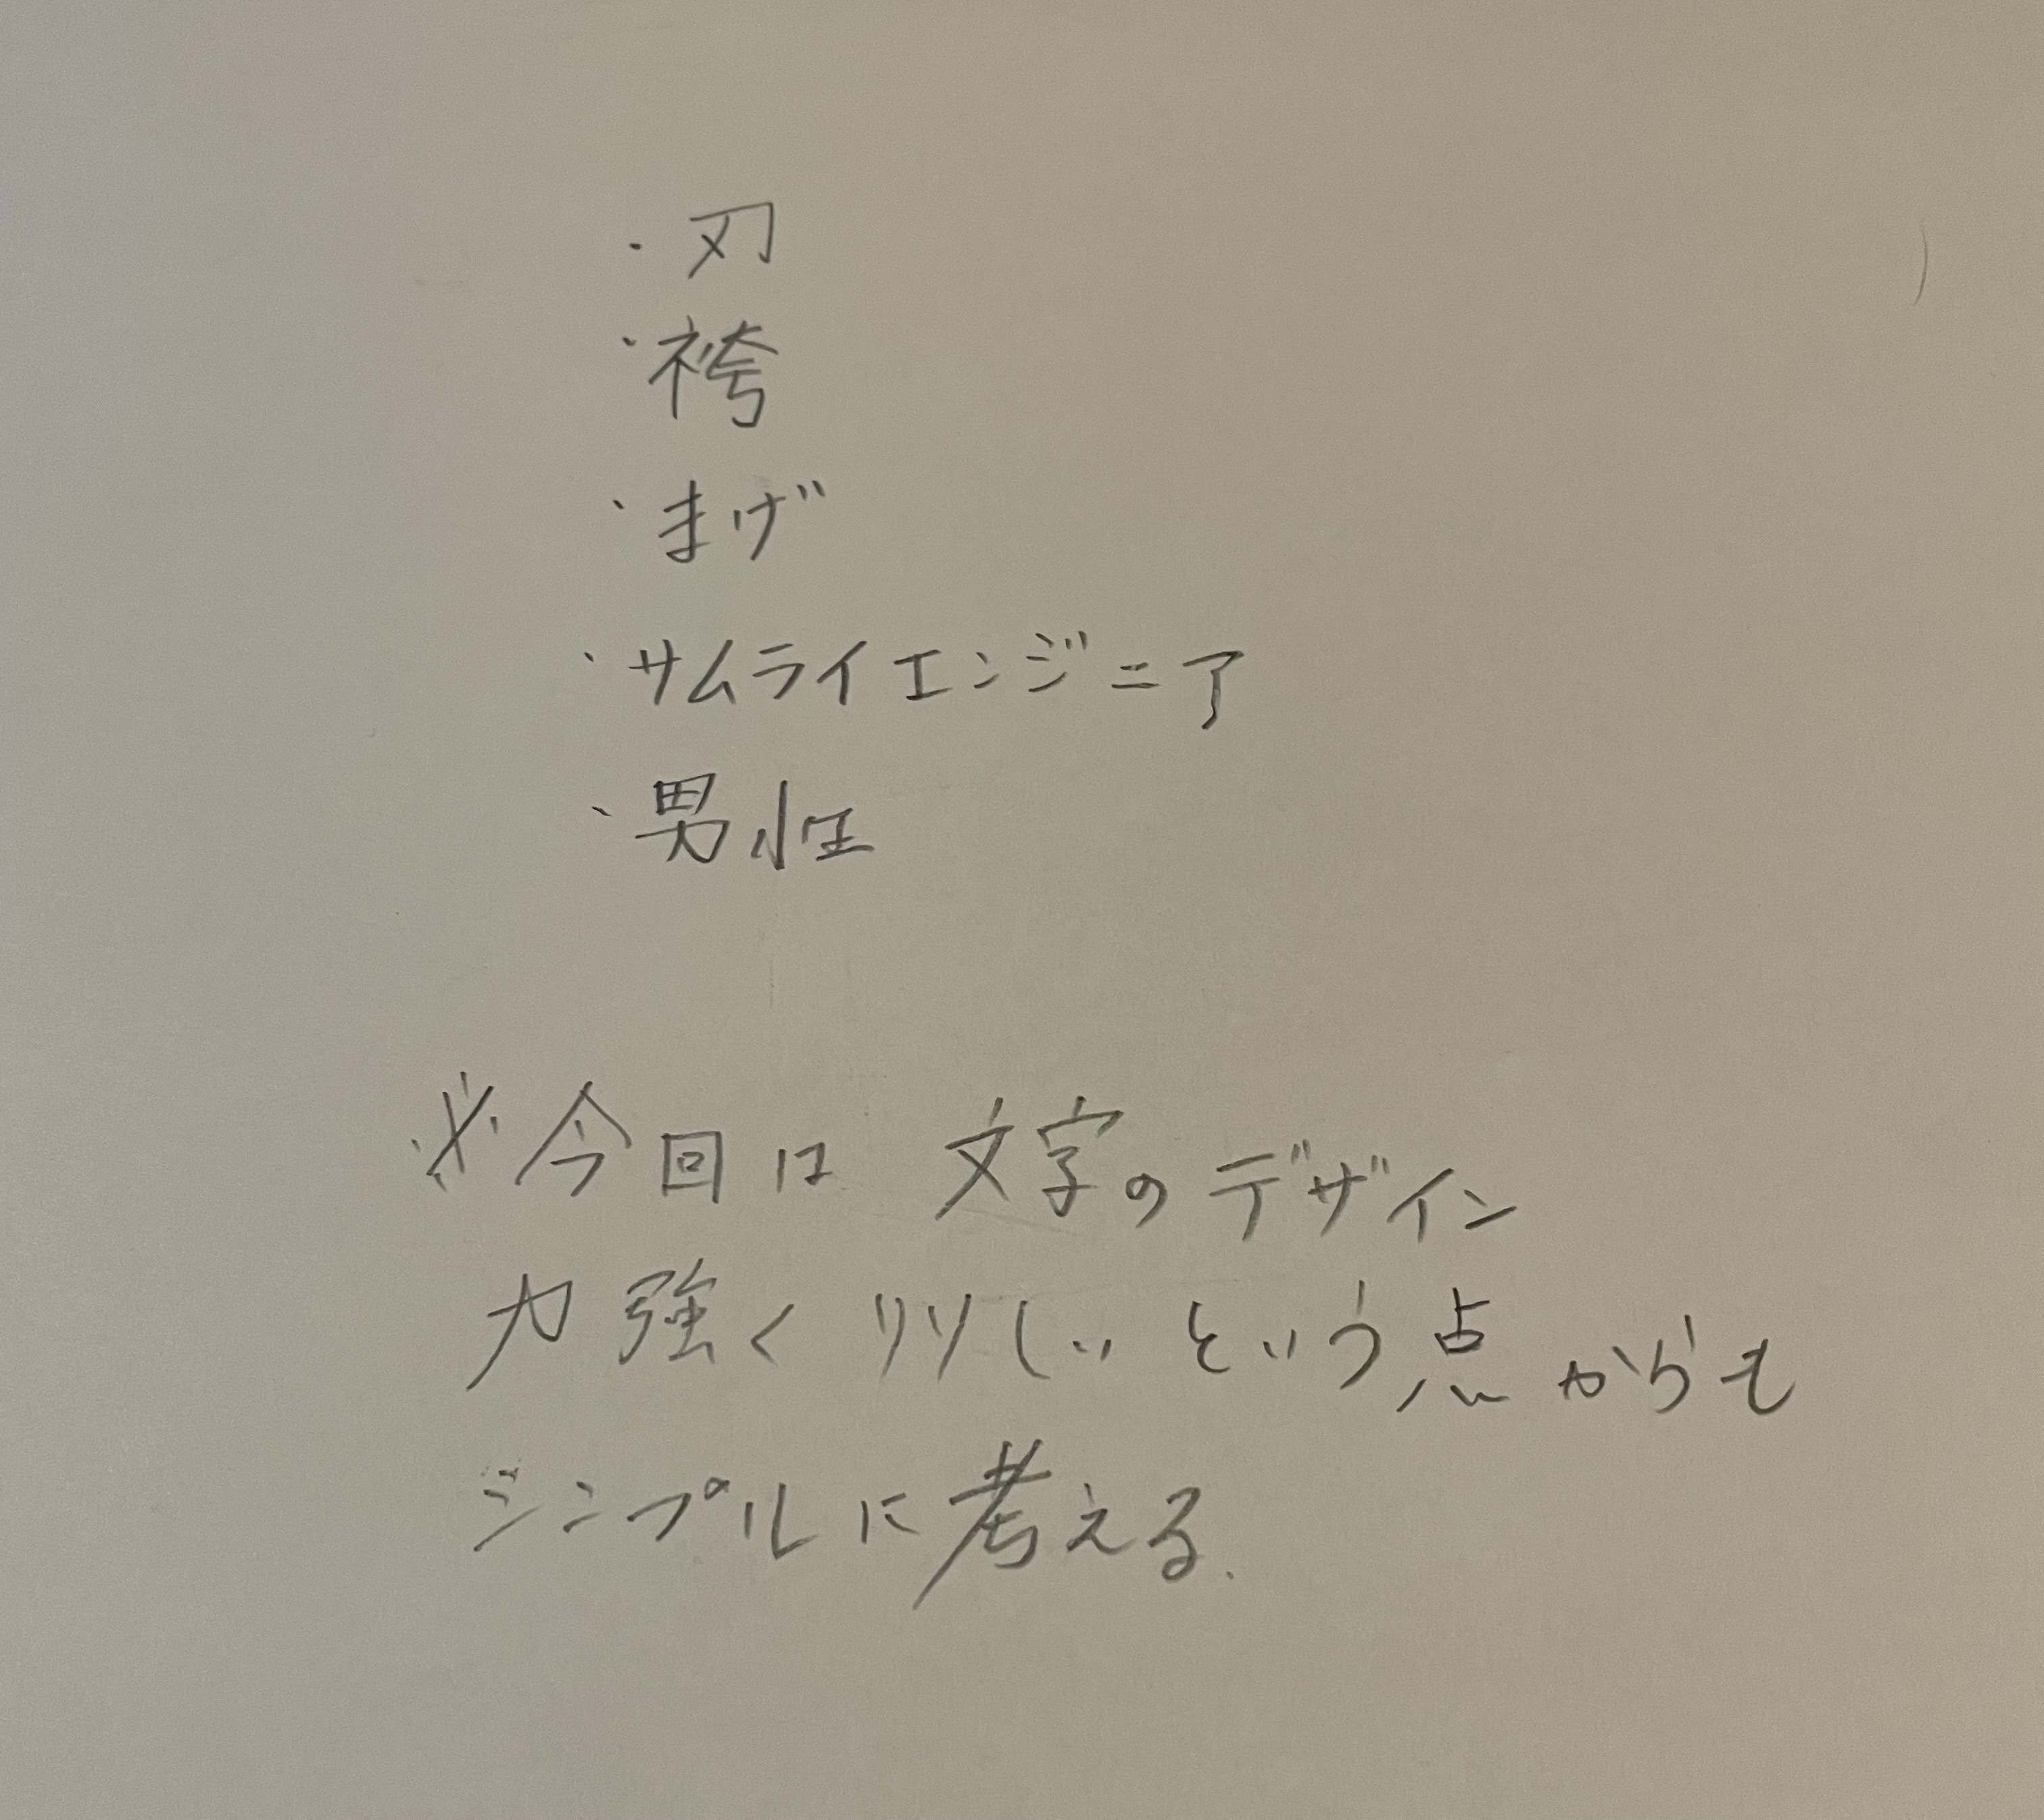 ・刃
・袴
・まげ
・サムライエンジニア
・男性
※今回は 文字のデザイン
力強くりりしいという点からも
シンプルに考える.